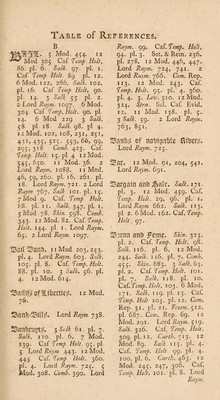 TABLE OF REFERENCES.
B
BAIL. 5 Mod. 454. 12
Mod 305 Caf Temp Holt.
86 pl. 6. Salk 97 pl. 1.
Caf Temp Holt 89 pl. 12.
6 Mod 122, 266. Salk 102.
pl. 16. Caf Temp Holt 90.
pl 14. 3 Salk 55 pl. 2.
2 Lord Raym. 1097. 6 Mod.
304 Caf Temp Holt. 90. pl.
12. 6 Mod 229 3 Salk.
58 pl 18 Salk 98. pl 4.
12 Mod 102, 108, 251,
431, 435, 525, 559, 66, 99,
305, 318 Comb 423. Caf
Temp Holt. 15. pl 4 12 Mod
445, 690. 11 Mod. 36. 2
Lord Raym. 1088. 11 Mod.
46, 59, 260. pl. 16. 261. pl.
18. Lord Raym. 721. 2 Lord
Raym 767. Salk 101. pl. 15.
7 Mod 9. Caf. Temp Holt.
18, 11. Salk. 347. pl 1.
5 Mod 78 Skin 598. Comb.
342. 12 Mod 82. Caf Temp.
Holt. 144. pl 1. Lord Raym.
65. 2 Lord Raym. 1097.
Bail Bond. 11 Mod 203, 233.
pl. 4. Lord Raym. 603. Salk.
105. pl. 8. Caf. Temp Holt.
88. pl. 10. 3 Salk. 56. pl
4. 12 Mod 614.
Bailiffs of Liberties. 12 Mod.
76.
Bank-Bills. Lord Raym 738.
Bankrupts. 3 Salk 61. pl. 7.
Salk. 110. pl. 6. 7 Mod
139. Caf Temp Holt. 95. pl.
5 Lord Raym 443. 12 Mod.
443 Caf. Temp Holt. 360.
pl. 4. Lord Raym. 725. 4
Mod. 308. Comb. 390. Lord
Raym. 99. Caf. Temp. Holt.
94. pl 3. Set. & Rem. 236.
pl 278. 12 Mod. 446, 447.
Lord Raym. 724, 741. 2
Lord Raym 766. Com. Rep.
123. 12 Mod. 243. Caf.
Temp. Holt. 95. pl. 4. 360.
pl. 4. 3. Lev. 310. 12 Mod.
324. Stra. Sel. Caf. Evid.
12, 13 Mod 138. pl. 5.
3 Salk. 59. 2 Lord Raym.
763, 851.
Banks of navigable Rivers.
Lord Raym. 725.
Bar. 12 Mod. 91, 204, 541.
Lord Raym. 691.
Bargain and Sale. Salk. 171.
pl. 3. 12 Mod. 459. Caf.
Temp. Holt. 29, 96. pl. 1.
Lord Raym 661. Salk. 113.
pl. 2 6 Mod. 162. Caf. Temp.
Holt. 97.
Baron and Feme. Skin. 323.
pl. 2. Caf. Temp. Holt. 98.
Salk. 116. pl. 6. 12 Mod.
244. Salk. 116. pl. 7. Comb.
455. Skin. 682. 3 Salk. 63.
pl. 2. Caf. Temp Holt. 101.
pl. 7. Salk. 118. pl. 10.
Caf. Temp Holt, 103. 6 Mod.
171. Salk. 119. pl. 13. Caf.
Temp. Holt 103. pl. 11. Com.
Rep. 31, pl. 21. Freem. 512.
pl. 687. Com. Rep. 69. 12
Mod. 291. Lord Raym. 519.
Salk. 326. Caf. Temp Holt.
309. pl. 11. Carth. 713. 12
Mod. 89. Salk. 115. pl. 4
Caf. Temp. Holt. 99. pl. 4.
100. pl. 6. Carth. 463. 12
Mod. 245, 247, 306. Caf.
Temp. Holt, 101. pl. 8. Lord
Raym.